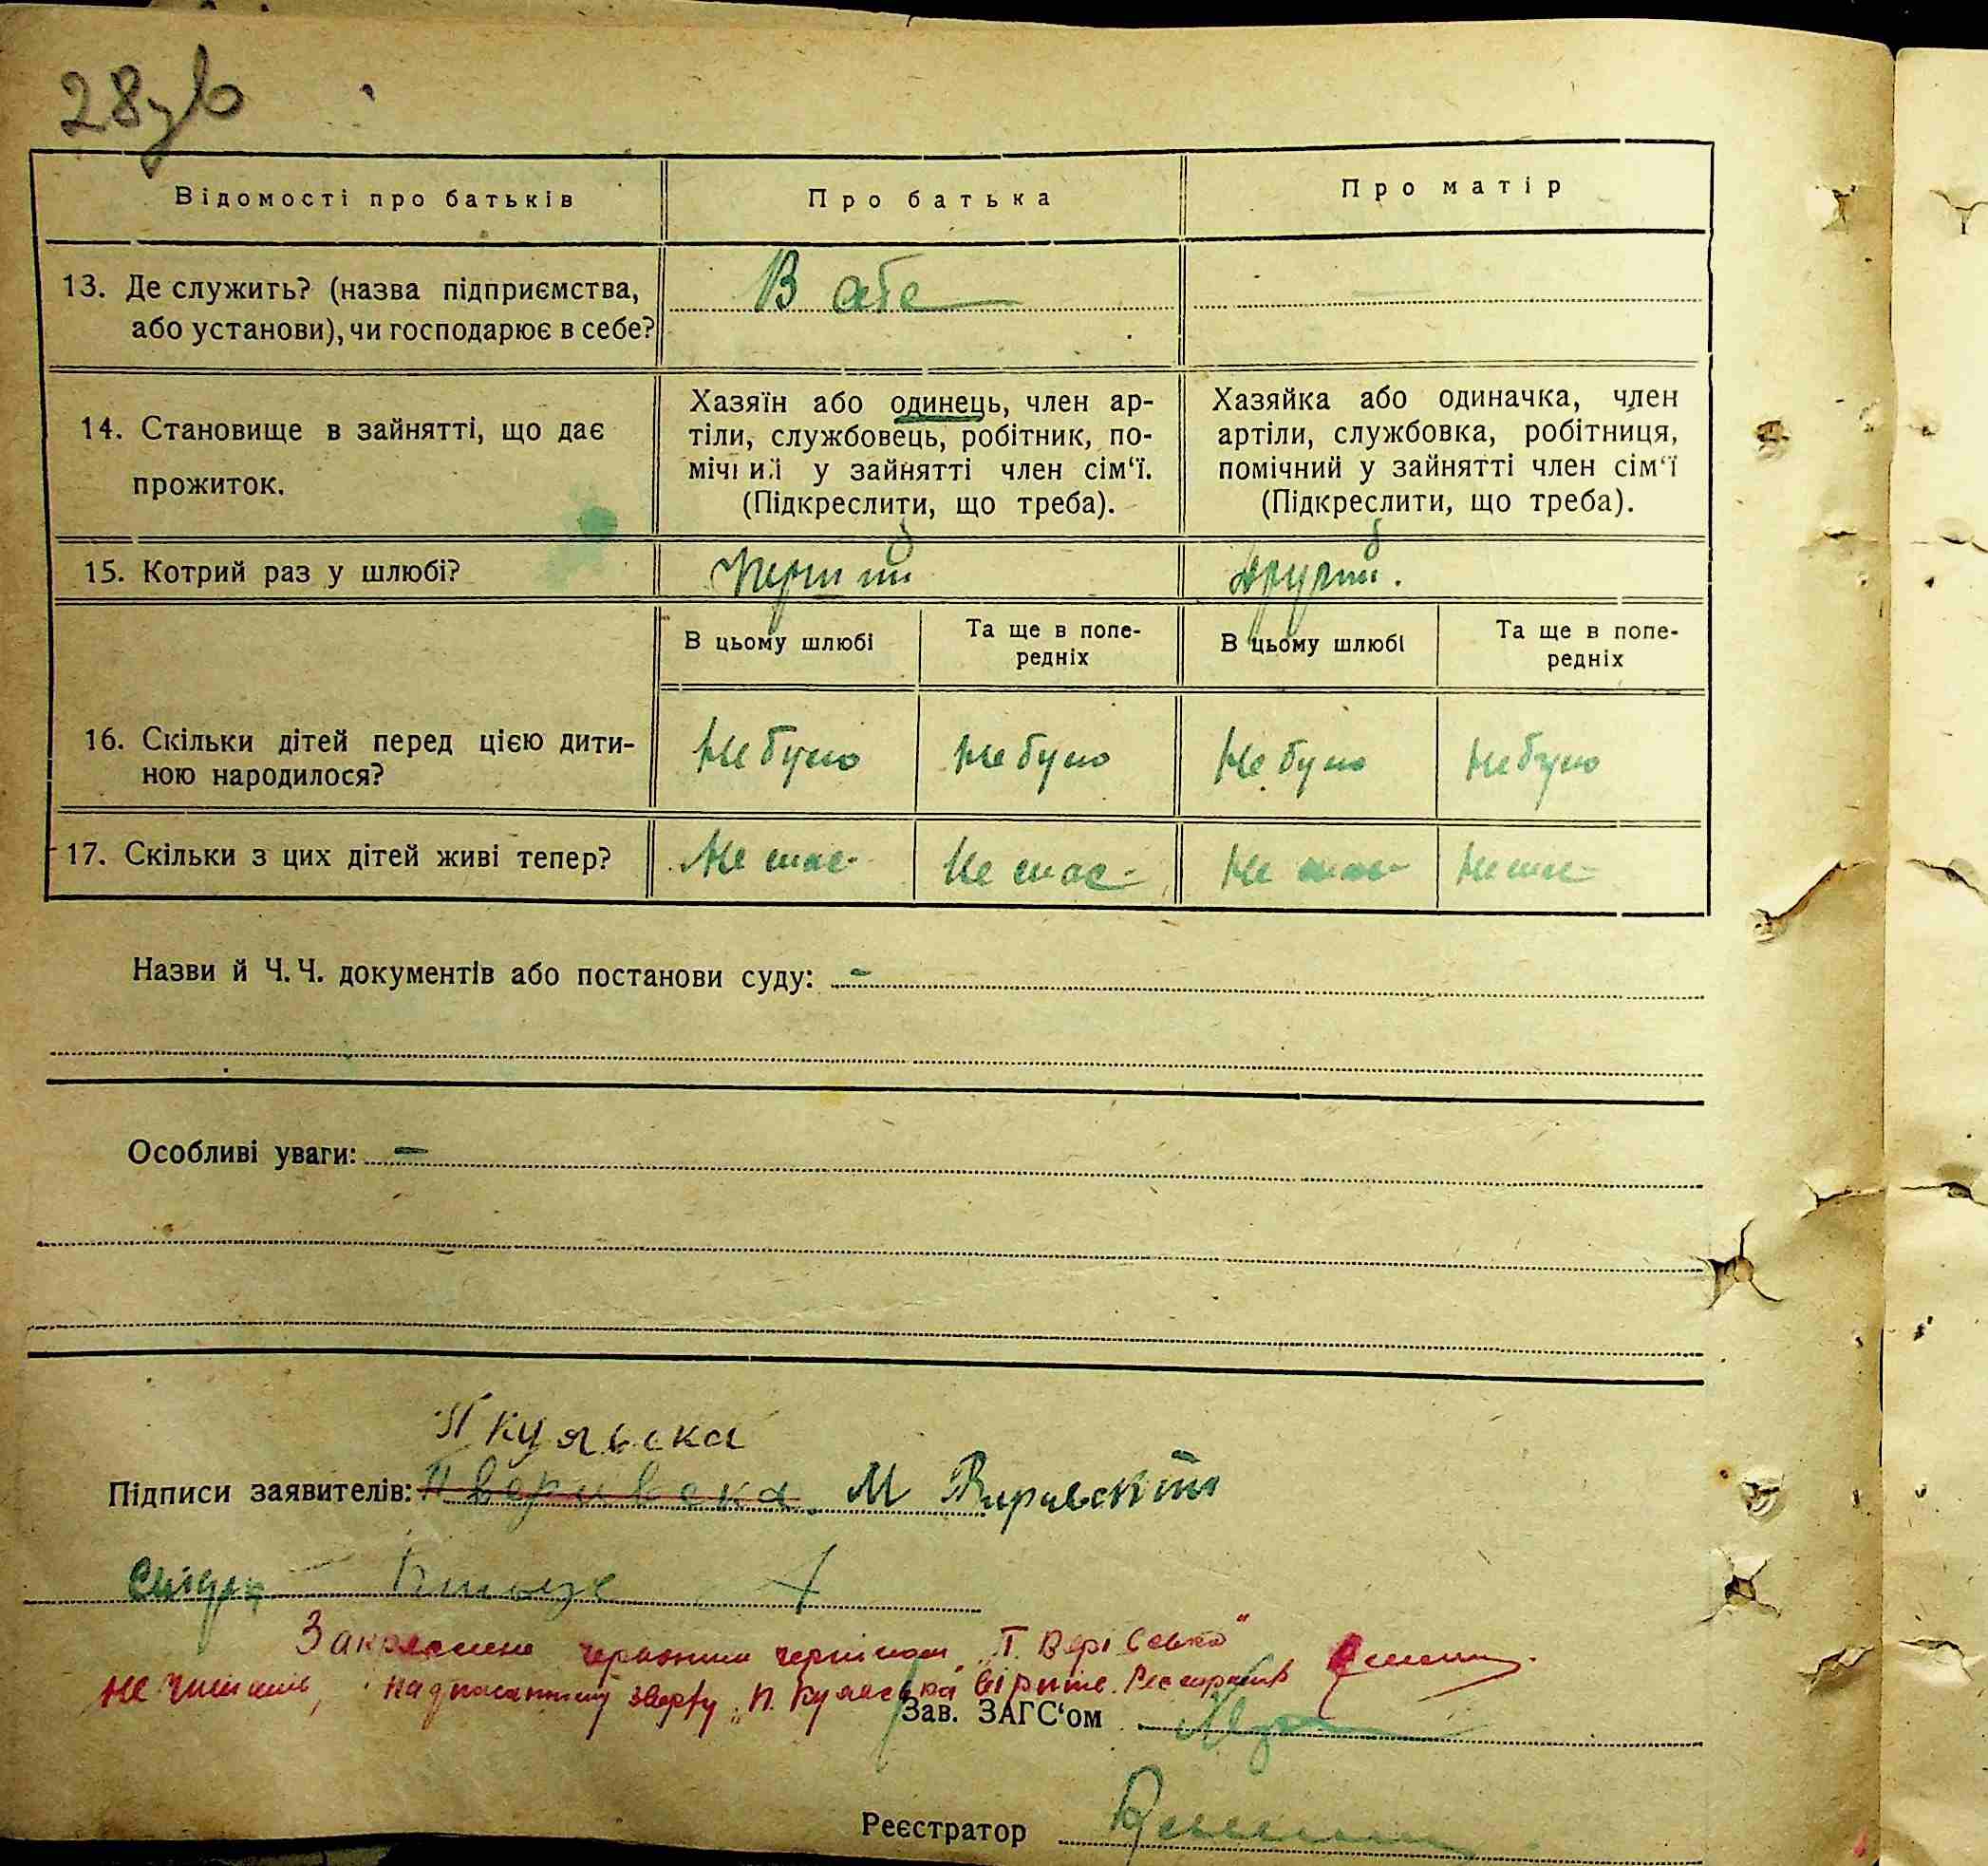 28зв
Відомості про батьків
Про батька
Про матір
13. Де служить? (назва підприємства,
або установи), чи господарює в себе?
В себе
14. Становище в зайнятті, що дає
прожиток.
Хазяїн або одинець, член ар-
тіли, службовець, робітник, по-
мічний у зайнятті член сім‘ї.
(Підкреслити, що треба).
Хазяйка або одиначка, член
артіли, службовка, робітниця,
помічний у зайнятті член сім‘ї
(Підкреслити, що треба).
15. Котрий раз у шлюбі?
Перший
другий.
В цьому шлюбі
Та ще в попе-
редніх
В цьому шлюбі
Та ще в попе-
редніх
16. Скільки дітей перед цією дити-
ною народилося?
Не було
Не було
Не було
Не було
17. Скільки з цих дітей живі тепер?
Не має
Не має
Не має
Не має
Назви й Ч. Ч. документів або постанови суду: –
Особливі уваги: –
П куявска
Підписи заявителів: П веривска М
Свідки
Закреслене червоним чернілом „П. Верівська“
не чинить, надписаному зверху „П. Куявська вірити. Реєстратор
Зав. ЗАГС‘ом
Реєстратор